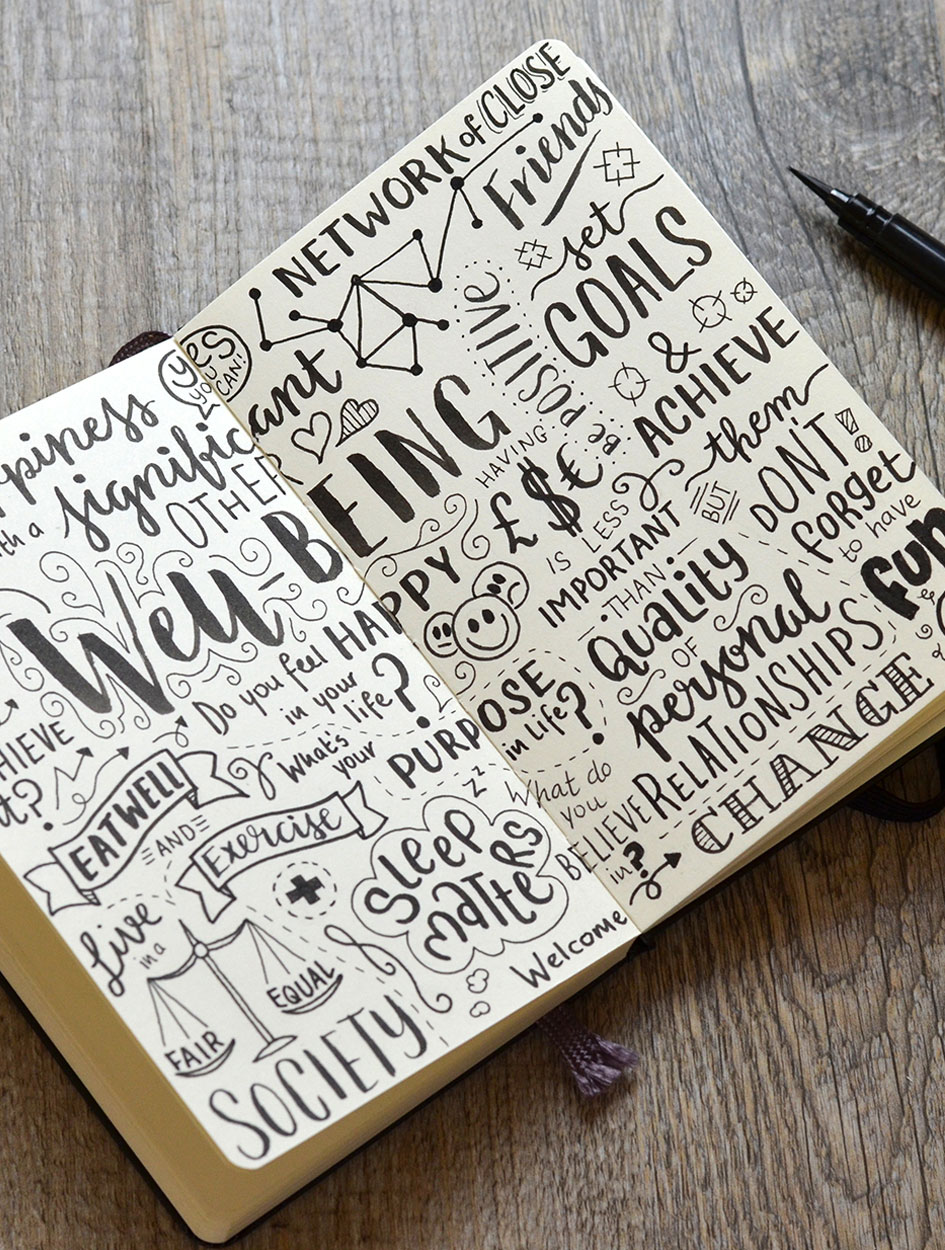 YES
YOU
CAN!
ppiness
th a significant
OTHER
Well-BEING
HIEVE
t?
Do you feel HAPPY
in your
life?
What's
your PURPOSE
in life?
EAT WELL
AND
Exercise
zz
Sleep
matters
Live
in a
FAIR
EQUAL
SOCIETY
NETWORK of (CLOSE
Friends
set
GOALS
&
ACHIEVE
them
BE POSITIVE
HAVING
£$€
IS LESS
IMPORTANT
THAN
Quality
OF
personal
RELATIONSHIPS
BUT
DON'T
forget
to have
fun
What do
you
BELIEVE
in?
Welcome
CHANGE